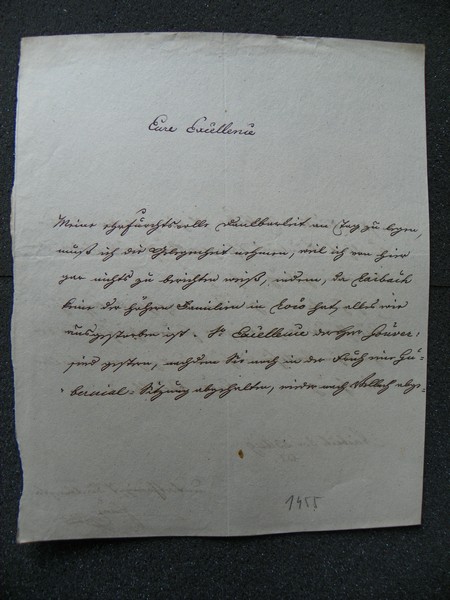 Eure Excellenz
Meine ehrfurchtsvolle Dankbarkeit an Tag zu legen,
muß ich die Gelegenheit nehmen, weil ich von hier
gar nichts zu berichten weiß, indem, da Laibach
keine der höhern Familien in loco hat, alles wie
ausgestorben ist. Se Excellenz der Herr Gouver-
sind gestern, nachdem Sie noch in der Früh eine Gu-
bernial-Sitzung abgehalten, wieder nach abge-
1455